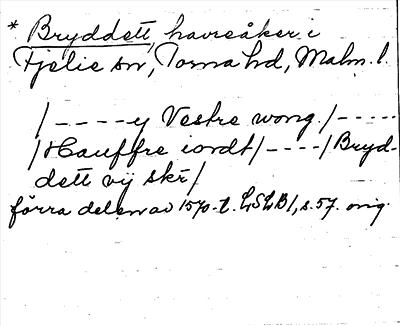 * Bryddett, havreåker i
Fjelie sn, Torna hd, Malm. l.
/----y Vestre wong /-----
/Hauffre iordt/----/Bryd-
dett vij skr/
förra delen av 1570-t. LSLB1, s. 57. orig.